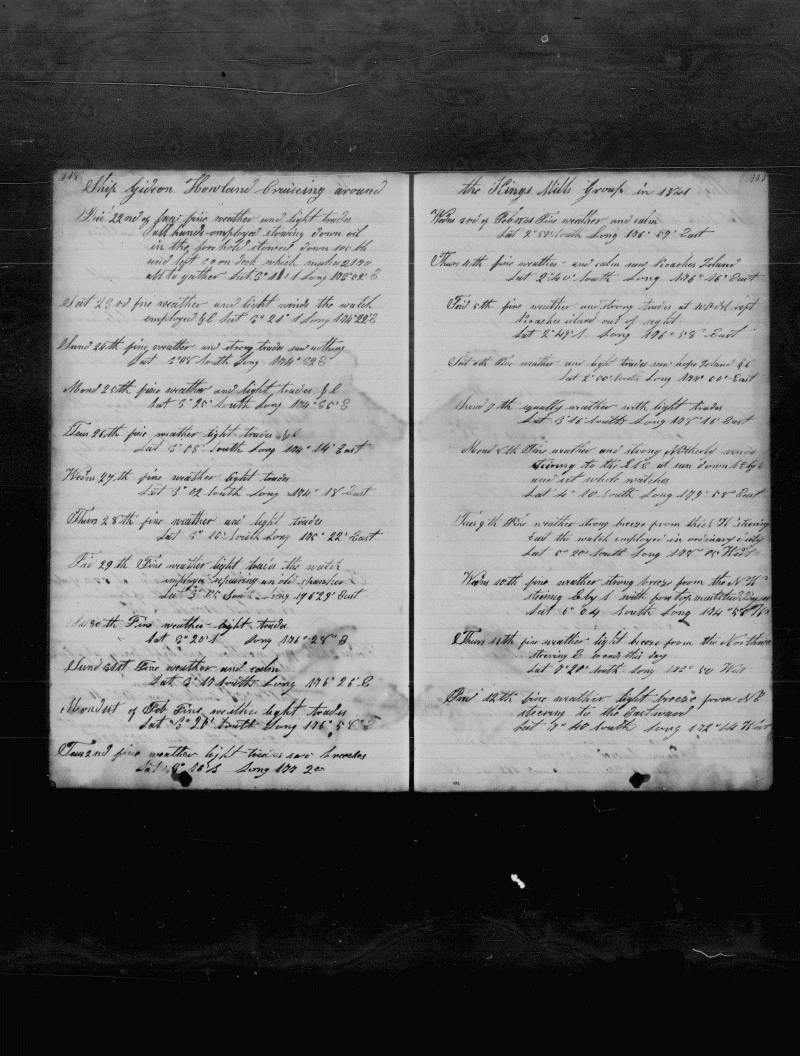 118
Ship Gideon Howland Cruiseing around
Fri 22nd of fine weather and light trades
all hands employed stowing down oil
in the fore hold stowed down bbl
and left on deck which makes
all to gather Lat 3° Long E
Sat 23rd fine weather and light winds the watch
employed &C Lat 3° 21' Long 174° 22 E
Sund 24th fine weather and strong trades saw nothing
Lat 3° 48 South Long 174° 32 E
Mond 25th fine weather and light trades &C
Lat 3° 25' South Long 174° 35' E
Tues 26th fine weather light trades &C
Lat 3° 08' South Long 174° 14' East
Wedns 27th fine weather light trades
Lat 3° 02 South Long 174° 18 East
Thurs 28th fine weather and light trades
Lat 3° 10' South Long 22' East
Fri 29th Fine weather light trades the watch
employed repairing an old spanker
Lat 3° South Long 176 29' East
Sat 30th Fine weather light trades
Lat 3° 20' S Long 176° 28' E
Sund 31st Fine weather and calm
Lat 3° 17 South Long 176° 26' E
Mond 1st of Feb Fine weather light trades
Lat 3° South Long 176° 58' E
Tues 2nd fine weather light trades saw
Lat S Long 177
the Kings Mills Group in 1841
Wedns 3rd of Feb Fine weather and calm
Lat 2° South Long 176° 59' East
Thurs 4th fine weather and calm saw Roaches Island
Lat 2° 40' South Long 176° 16' East
Frid 5th fine weather and strong trades at
Roaches island out of sight
Lat 2° 49' S. Long 176° 58' East
Sat 6th Fine weather and light trades saw hope Island &C
Lat 2° South Long East
Sund 7th squally weather with light trades
Lat 3° 16 South Long 16' East
Mond 8th Fine weather and strong Notherly winds
steering to the ESE at sun down
and set whole watches
Lat 4° 10 South Long 179° 58' East
Tues 9th Fine weather strong breeze from the steering
East the watch employed in ordinary duty
Lat 5° 20' South Long West
Wedns 10th fine weather strong breeze from the N W
steering E by S with fore topmast
Lat 6° 04 South Long 174° 56' W
Thurs 11th fine weather light breeze from the Northward
steering E so ends this day
Lat 7° 20' South Long West
Frid 12th fine weather light breeze from NE
steering to the Eastward
Lat 7° 40 South Long 172° 14 West